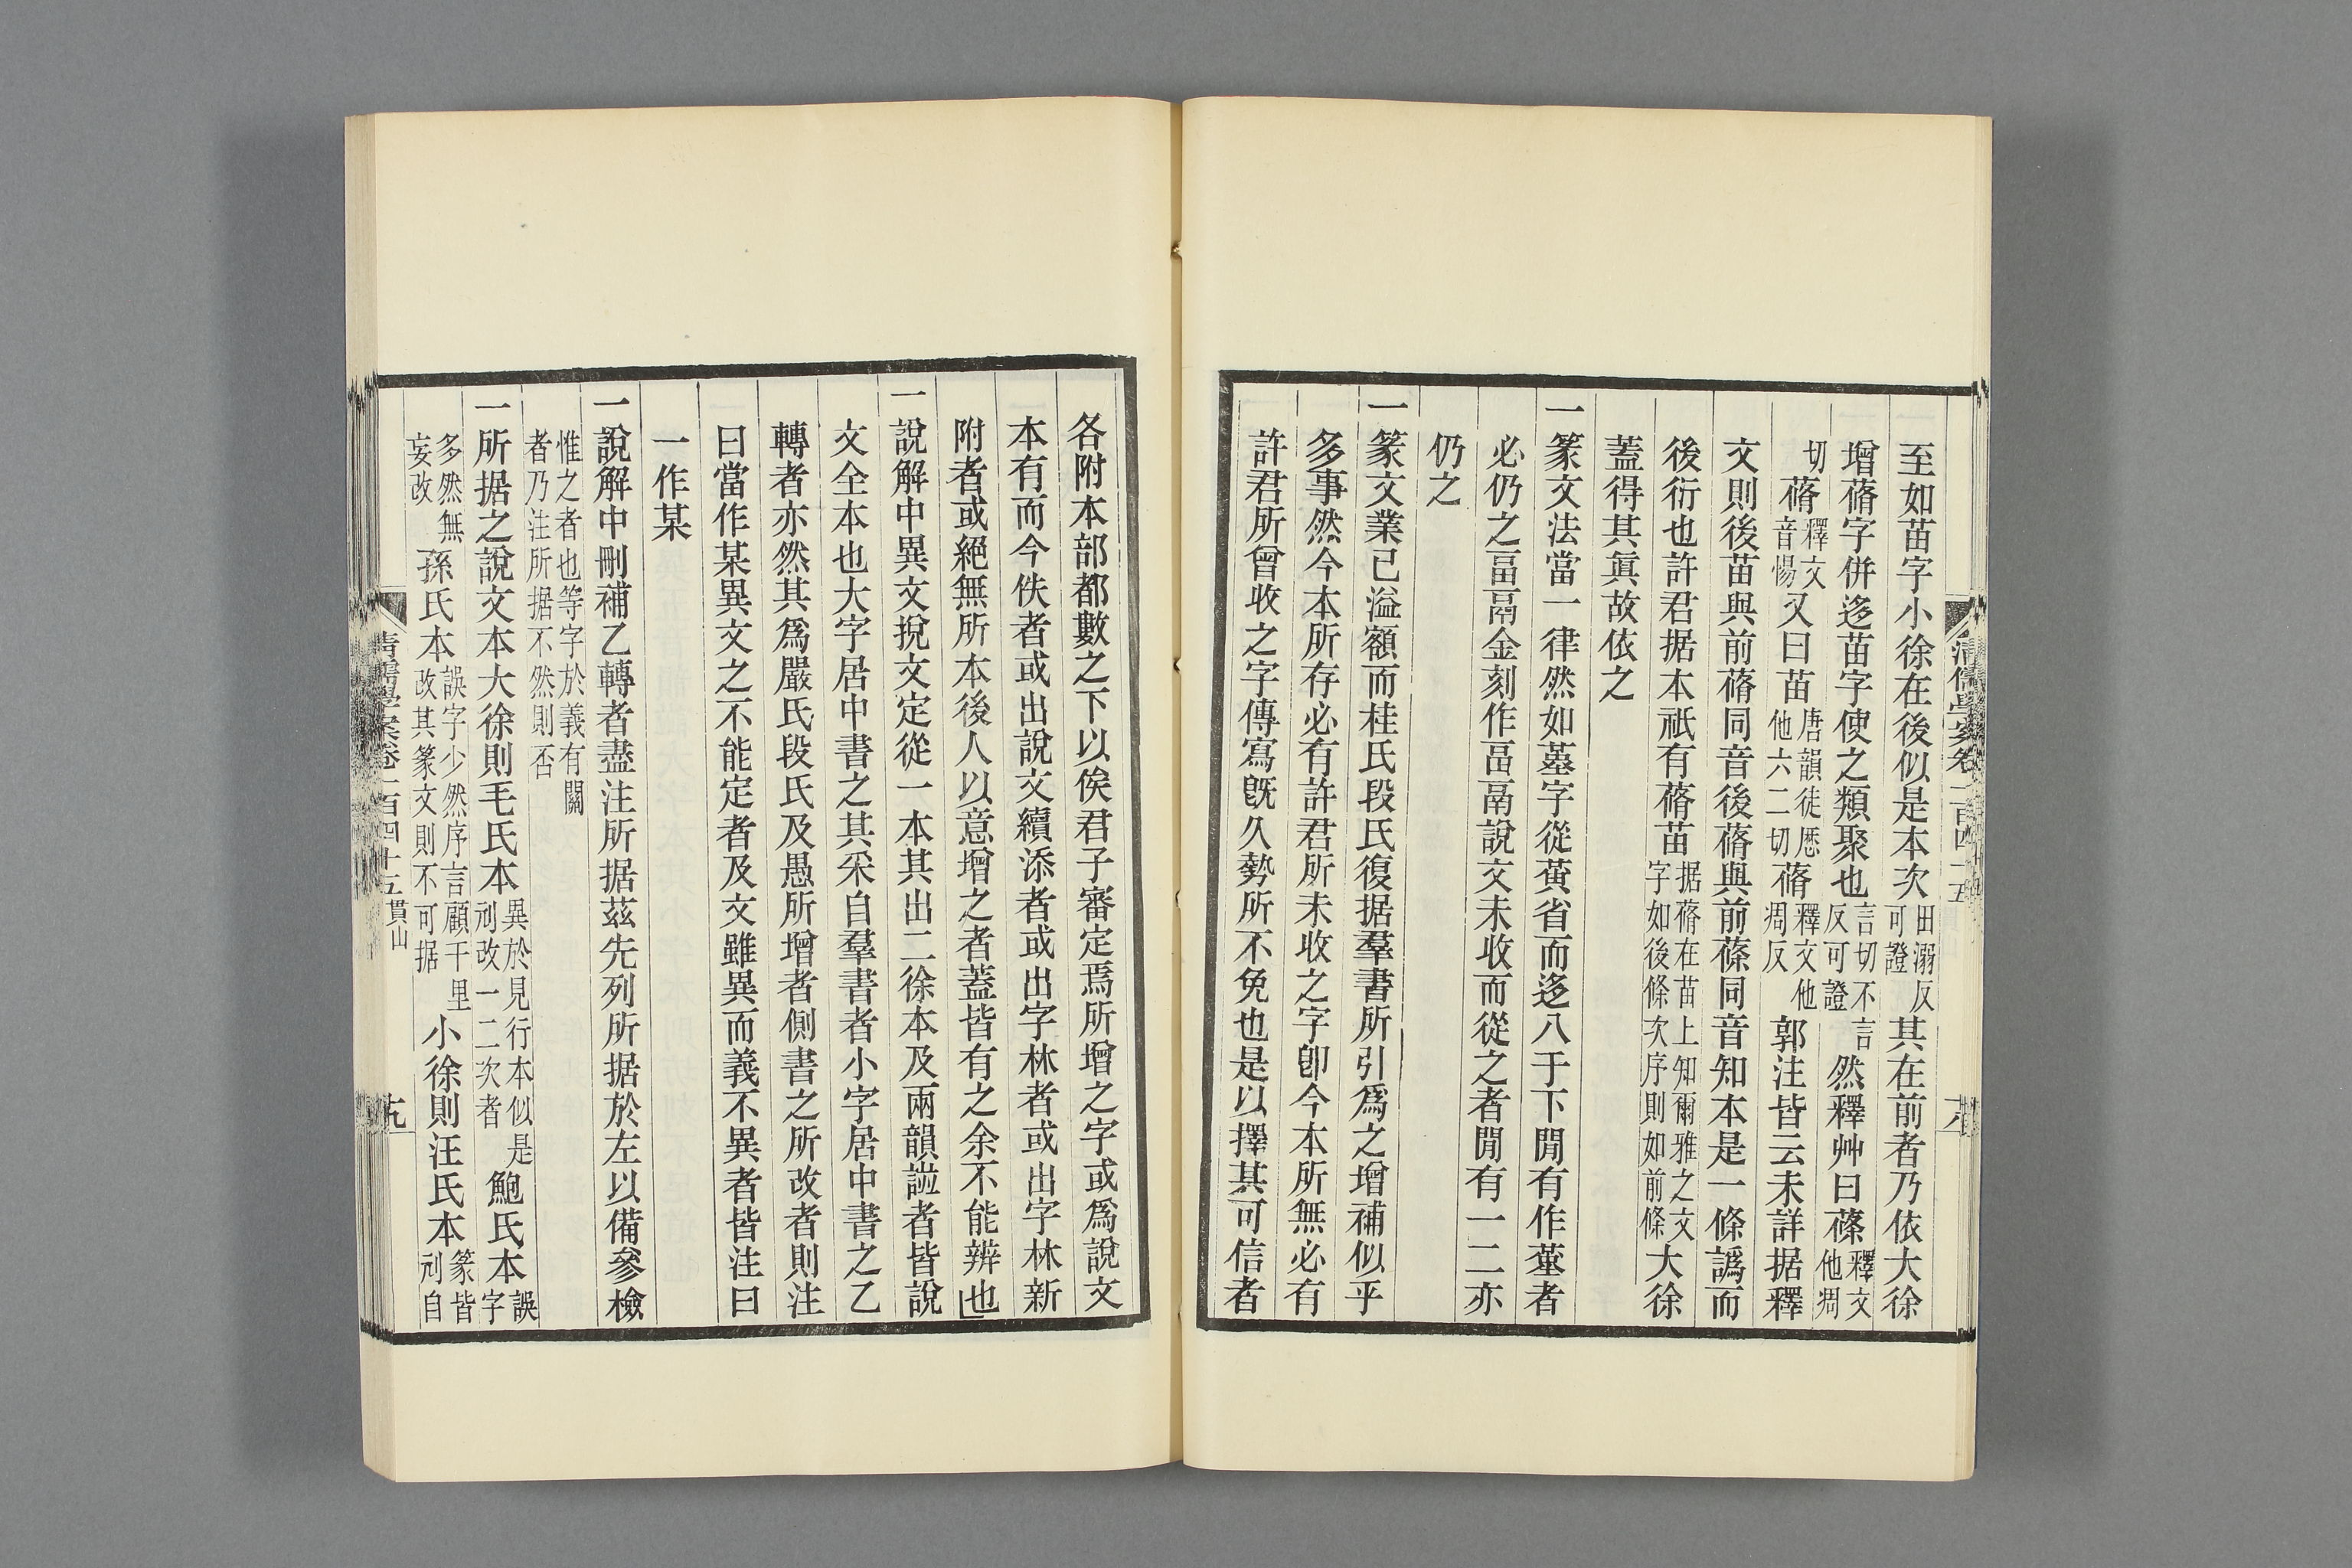 至如苗字小徐在後似是本次田溺反可證其在前者乃依大徐
增蓨字併迻苗字使之類聚也言切不言反可證然釋艸曰蓨釋文他凋
切蓨釋文音惕又曰苗唐韻徒厯他六二切蓨釋文他凋反郭注皆云未詳据釋
文則後苗與前蓨同音後蓨與前蓨同音知本是一條譌而
後衍也許君据本祇有蓨苗据蓨在苗上知爾雅之文字如後條次序則如前條大徐
蓋得其眞故依之
一篆文法當一律然如墓字從黃省而迻八于下閒有作堇者
必仍之畐鬲金刻作畐鬲說文未收而從之者閒有一二亦
仍之
一篆文業已溢額而桂氏段氏復据羣書所引爲之增補似乎
多事然今本所存必有許君所未收之字卽今本所無必有
許君所曾收之字傳寫旣久勢所不免也是以擇其可信者
清儒學案卷一百四十五
各附本部都數之下以俟君子審定焉所增之字或爲說文
本有而今佚者或出說文續添者或出字林者或出字林新
附者或絕無所本後人以意增之者蓋皆有之余不能辨也
一說解中異文挩文定從一本其出二徐本及兩韻譜者皆說
文全本也大字居中書之其采自羣書者小字居中書之乙
轉者亦然其爲嚴氏段氏及愚所增者側書之所改者則注
曰當作某異文之不能定者及文雖異而義不異者皆注曰
一作某
一說解中刪補乙轉者盡注所据茲先列所据於左以備參檢
惟之者也等字於義有關者乃注所据不然則否
一所据之說文本大徐則毛氏本異於見行本似是剜改一二次者鮑氏本誤字
多然無妄改孫氏本誤字少然序言顧千里改其篆文則不可据小徐則汪氏本篆皆剜自
清儒學案卷一百四十五 貫山
十九